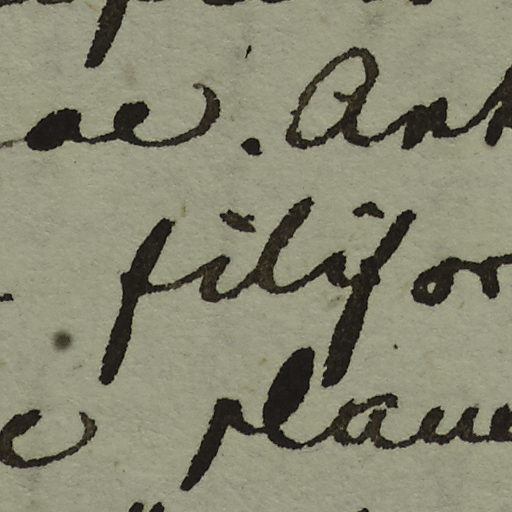 ae. Anh
filifor
e plane